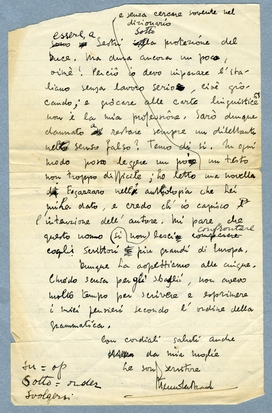 e senza cercare sovente nel
dizionario
essere, a Sotto
Sestri protezione del
Duce. Ma dura ancora un poco,
oimè! Perciò io devo imparare l'Ita-
liano senza lavoro serio, cioè gio-
cando; e giocare alle carte linguistiche
non è la mia professione. Sarò dunque
dannato a restare sempre un dilettante
nel senso falso? Temo di si. In ogni
modo posso leggere un po' un testo
non troppo difficile; ho letto una novella
di Fogazzaro nella antologia che Lei
mi ha dato, e credo ch'io capisco
l'intenzione dell'autore. Mi pare che
confrontare
questo uomo si non lascia
cogli scrittori più grandi di Europa.
Dunque La aspettiamo alle cinque.
Chiedo scusa per gli sbagli, non avevo
molto tempo per scrivere e esprimere
i miei pensieri secondo l'ordine della
grammatica.
Con cordiali saluti anche
da mia moglie
su = op
Sotto = onder
svolgersi